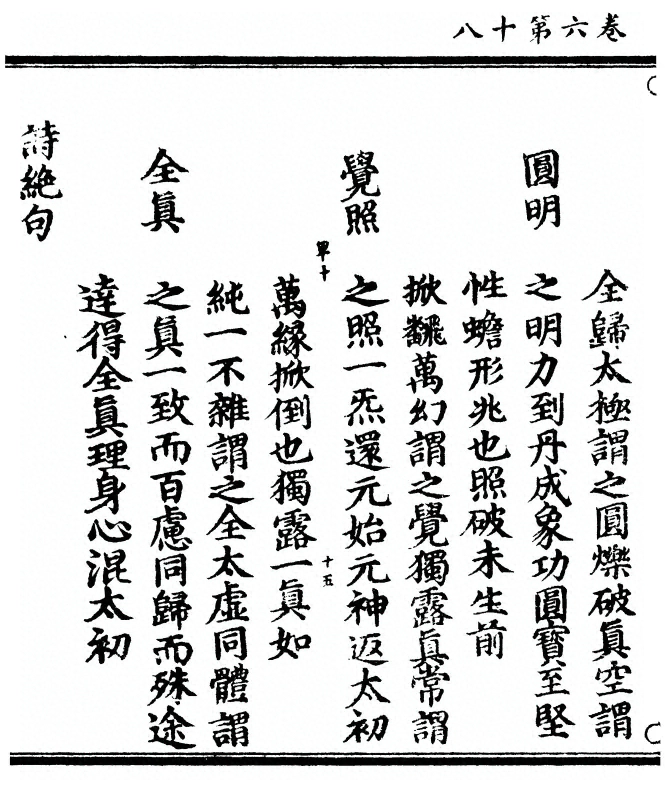 卷六第十八
圓明
全歸太極謂之圓爍破真空謂
之明力到丹成象功圓寶至堅
性蟾形兆也照破未生前
覺照
掀翻萬幻謂之覺獨露真常謂
之照一炁還元始元神返太初
單十
萬緣掀倒也獨露一真如
十五
全真
純一不雜謂之全太虛同體謂
之真一致而百慮同歸而殊途
達得全真理身心混太初
詩絕句